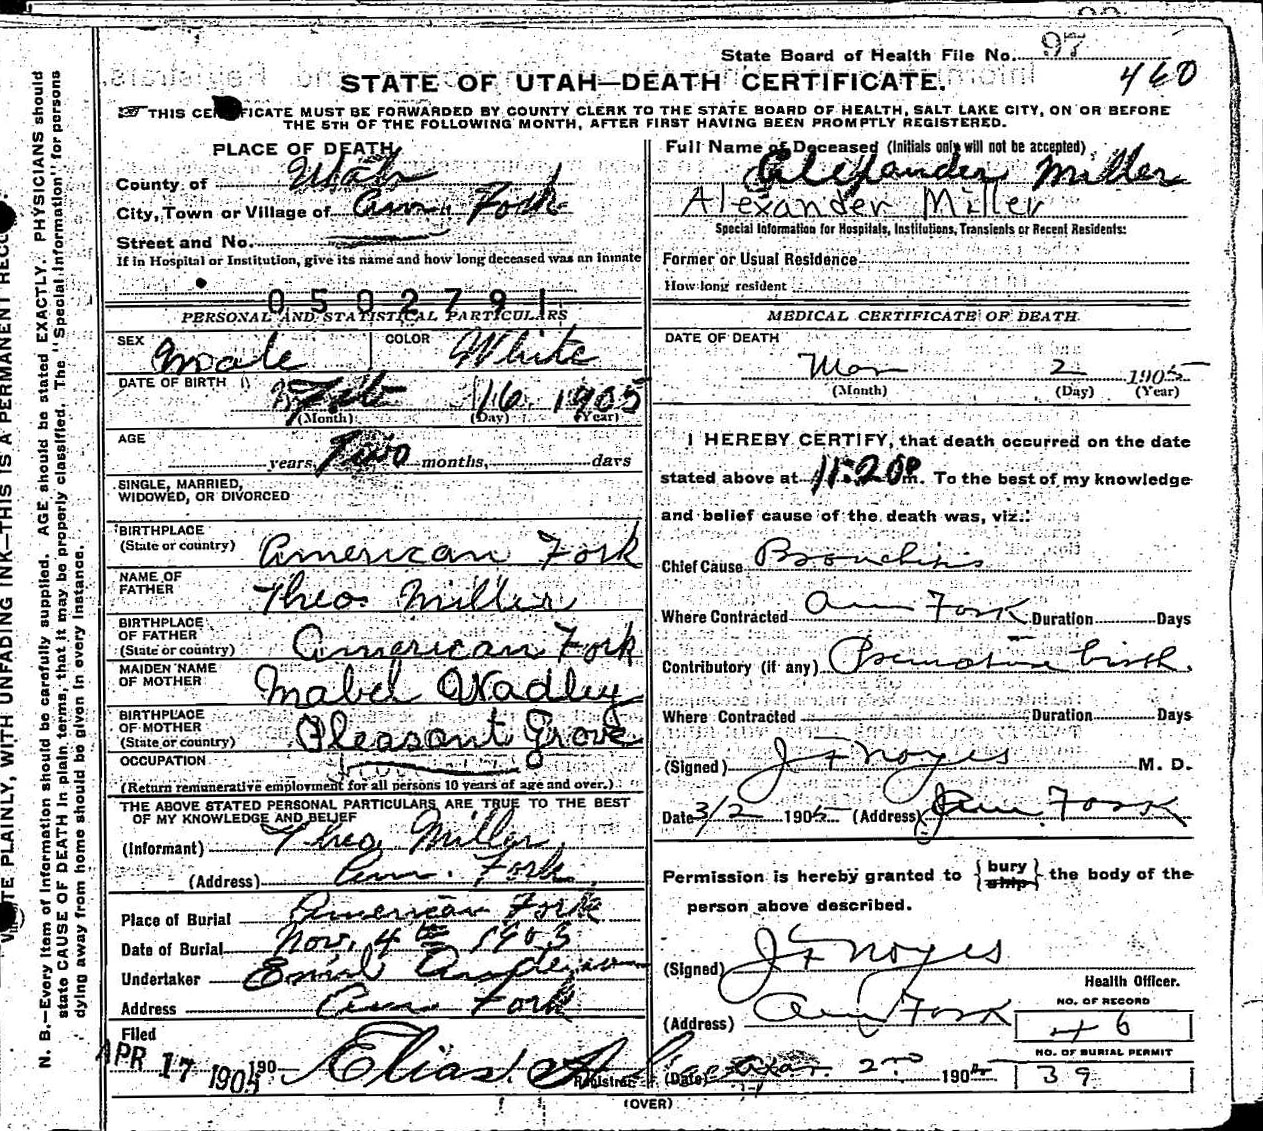 State Board of Health File No. 97
460
STATE OF UTAH—DEATH CERTIFICATE.
THIS CERTIFICATE MUST BE FORWARDED BY COUNTY CLERK TO THE STATE BOARD OF HEALTH, SALT LAKE CITY, ON OR BEFORE
THE 5TH OF THE FOLLOWING MONTH, AFTER FIRST HAVING BEEN PROMPTLY REGISTERED.
PLACE OF DEATH
County of Utah
City, Town or Village of Am. Fork
Street and No.
If in Hospital or Institution, give its name and how long deceased was an inmate
0502791
PERSONAL AND STATISTICAL PARTICULARS
SEX Male COLOR White
DATE OF BIRTH Feb 16 1905
(Month) (Day) (Year)
AGE
years Two months, days
SINGLE, MARRIED,
WIDOWED, OR DIVORCED
BIRTHPLACE
(State or country) American Fork
NAME OF
FATHER Theo. Miller
BIRTHPLACE
OF FATHER
(State or country) American Fork
MAIDEN NAME
OF MOTHER Mabel Wadley
BIRTHPLACE
OF MOTHER
(State or country) Pleasant Grove
OCCUPATION
(Return remunerative employment for all persons 10 years of age and over.)
THE ABOVE STATED PERSONAL PARTICULARS ARE TRUE TO THE BEST
OF MY KNOWLEDGE AND BELIEF
(Informant) Theo. Miller
(Address) Am. Fork
Place of Burial American Fork
Date of Burial Nov. 4th 1903
Undertaker Emil Anderson
Address Am. Fork
Filed
APR 17 1905 190 Elias
Registrar
Full Name of Deceased (Initials only will not be accepted)
Alexander Miller
Alexander Miller
Special Information for Hospitals, Institutions, Transients or Recent Residents:
Former or Usual Residence
How long resident
MEDICAL CERTIFICATE OF DEATH
DATE OF DEATH
Mar 2 1905
(Month) (Day) (Year)
I HEREBY CERTIFY, that death occurred on the date
stated above at 11:20 P m. To the best of my knowledge
and belief cause of the death was, viz.:
Chief Cause Bronchitis
Where Contracted Am Fork Duration Days
Contributory (if any) Premature birth
Where Contracted Duration Days
(Signed) J F Noyes M. D.
Date 3/2 1905 (Address) Am. Fork
Permission is hereby granted to {bury ship} the body of the
person above described.
(Signed) J F Noyes
Health Officer.
(Address) Am Fork
NO. OF RECORD
46
NO. OF BURIAL PERMIT
39
(Date) Mar. 2nd 1905
(OVER)
N. B.—Every item of information should be carefully supplied. AGE should be stated EXACTLY. PHYSICIANS should
state CAUSE OF DEATH in plain terms, that it may be properly classified. The "Special Information" for persons
dying away from home should be given in every instance.
PLAINLY, WITH UNFADING INK—THIS IS A PERMANENT